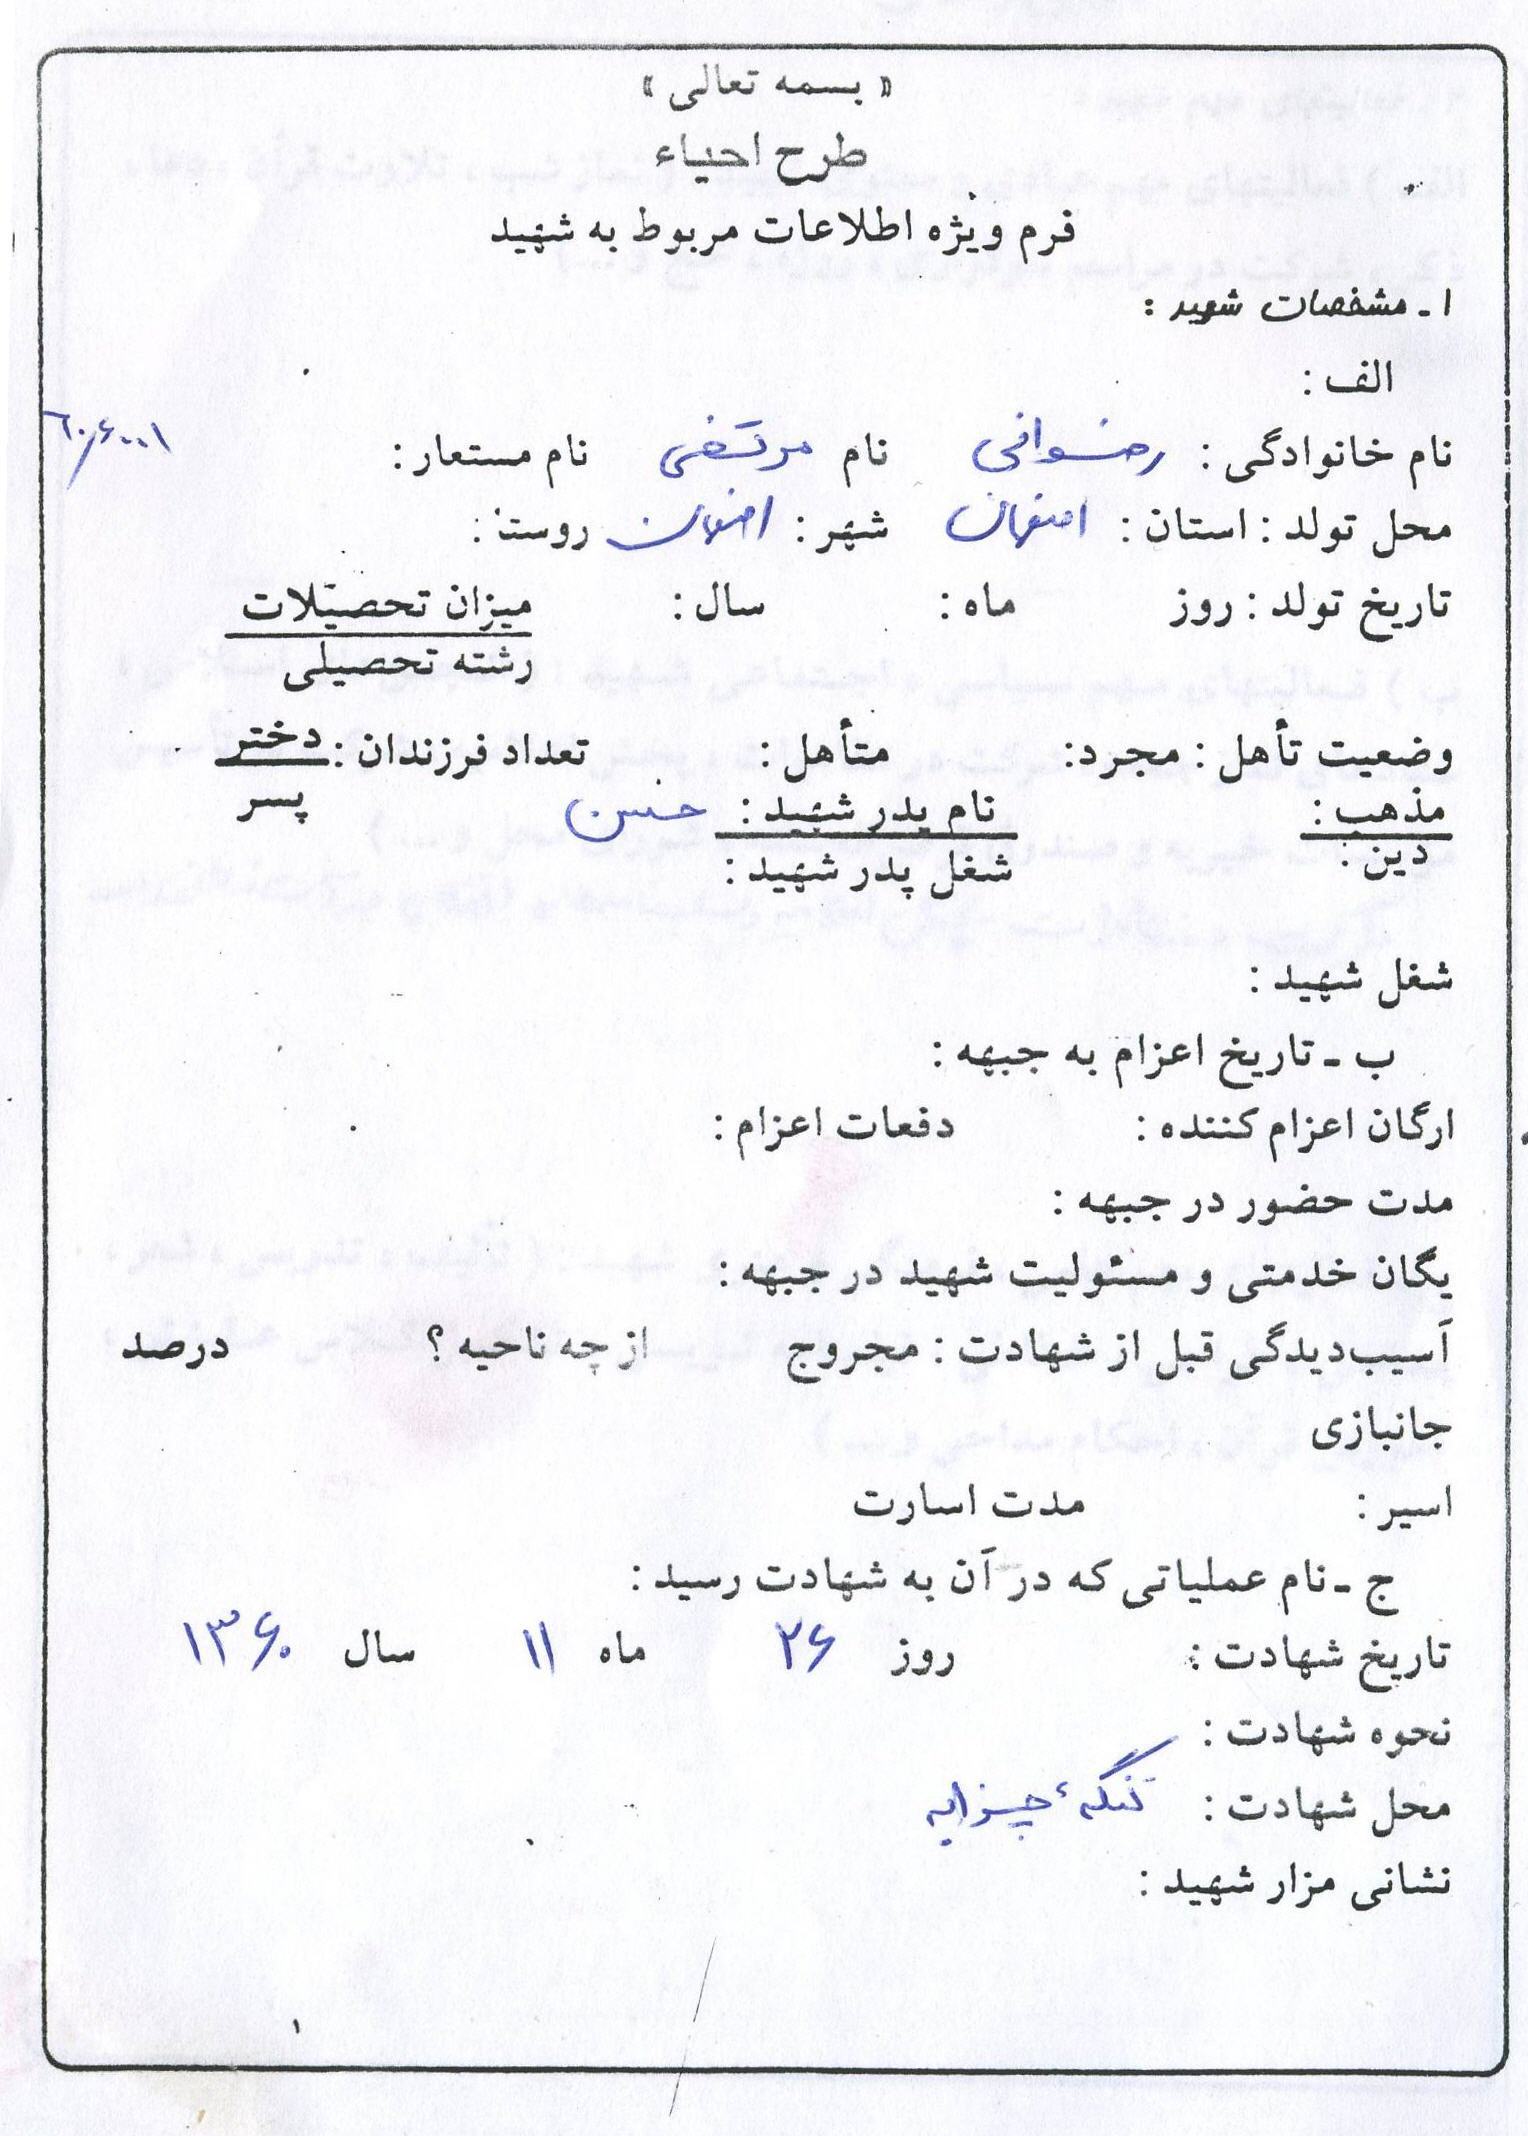 « بسمه تعالی »
طرح احیاء
فرم ویژه اطلاعات مربوط به شهید
۱ - مشخصات شهید :
الف :
نام خانوادگی : رضوانی نام مرتضی نام مستعار :
محل تولد : استان : اصفهان شهر : اصفهان روست :
تاریخ تولد : روز ماه : سال : میزان تحصیلات
رشته تحصیلی
وضعیت تأهل : مجرد: متأهل : تعداد فرزندان : دختر
پسر
مذهب : نام پدر شهید : حسن
دین : شغل پدر شهید :
شغل شهید :
ب - تاریخ اعزام به جبهه :
ارگان اعزام کننده : دفعات اعزام :
مدت حضور در جبهه :
یگان خدمتی و مسئولیت شهید در جبهه :
آسیب‌دیدگی قبل از شهادت : مجروح از چه ناحیه ؟ درصد
جانبازی
اسیر : مدت اسارت
ج - نام عملیاتی که در آن به شهادت رسید :
تاریخ شهادت : روز ۲۶ ماه ۱۱ سال ۱۳۶۰
نحوه شهادت :
محل شهادت : تنگهٔ چزابه
نشانی مزار شهید :
۱